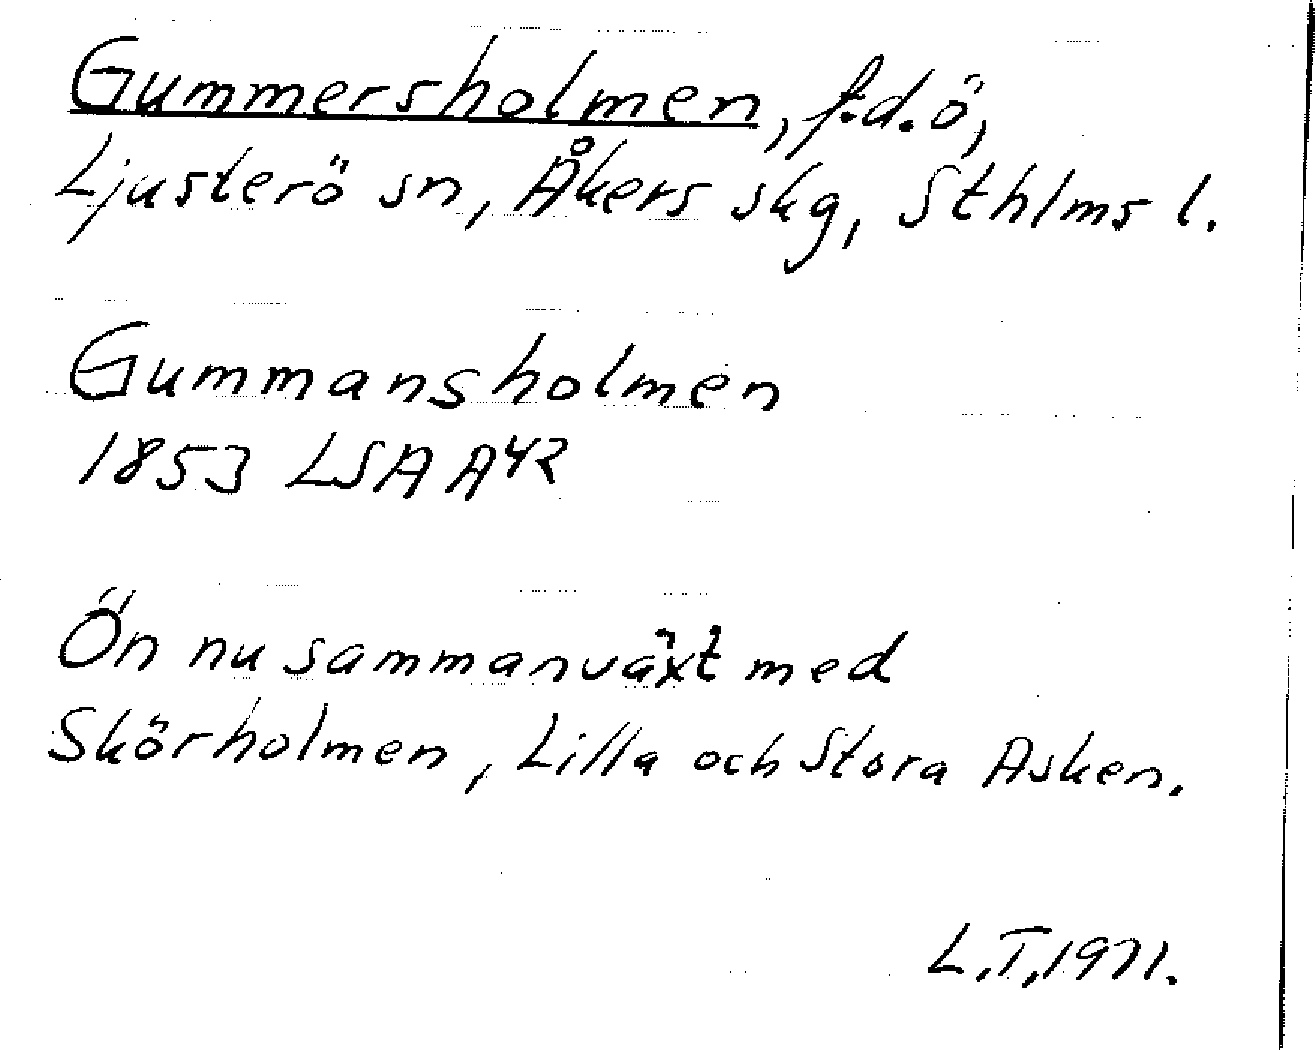 Gummersholmen, f.d. ö,
Ljusterö sn, Åkers skg, Sthlms l.
Gummansholmen
1853 LSA A42
Ön nu sammanväxt med
Skörholmen, Lilla och Stora Asken.
L.T. 1971.